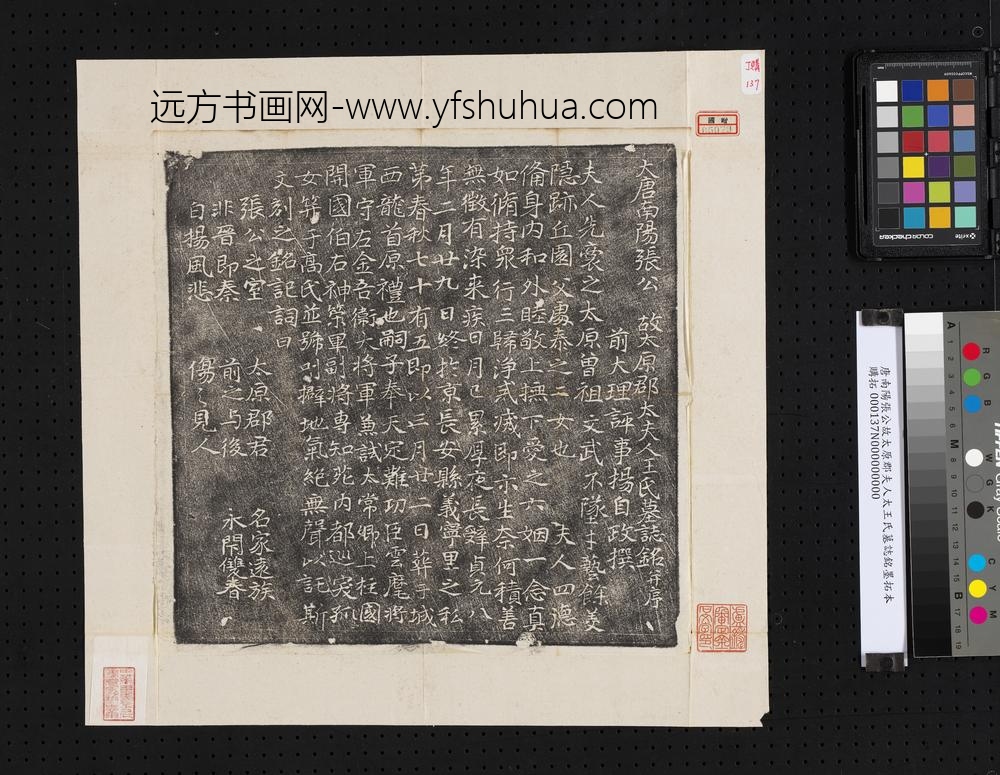 远方书画网-www.yfshuhua.com
大唐南陽張公 故太原郡太夫人王氏墓誌銘并序
前大理評事揚自政撰
夫人先裔之太原曾祖文武不墜於藝餘美
隱跡丘園父處泰之二女也 夫人四德
備身内和外睦敬上撫下愛之六姻一念真
如脩持衆行三歸淨戒滅即示生奈何積善
無徵有染来疾日月已累厚夜長辭貞元八
年二月廿九日終於京長安縣義寧里之私
第春秋七十有五即以三月廿二日葬于城
西龍首原禮也嗣子奉天定難功臣雲麾將
軍守左金吾衛大將軍兼試太常卿上柱國
開國伯右神策軍副將專知苑内都巡
女等于高氏並號叫擗地氣絶無聲以託斯
文刻之銘記詞曰
張公之室 太原郡君 名家遠族
非晉即秦 前之与後 永閇雙春
白揚風悲 傷〻見人
唐南陽張公故太原郡夫人太王氏墓誌銘墨拓本
購拓 000137N000000000
購
137
colorchecker
x-rite
A 1 2 3 4 5 6 M 8 9 10 11 12 13 14 15 B 17 18 19
R G B
W G K
C Y M